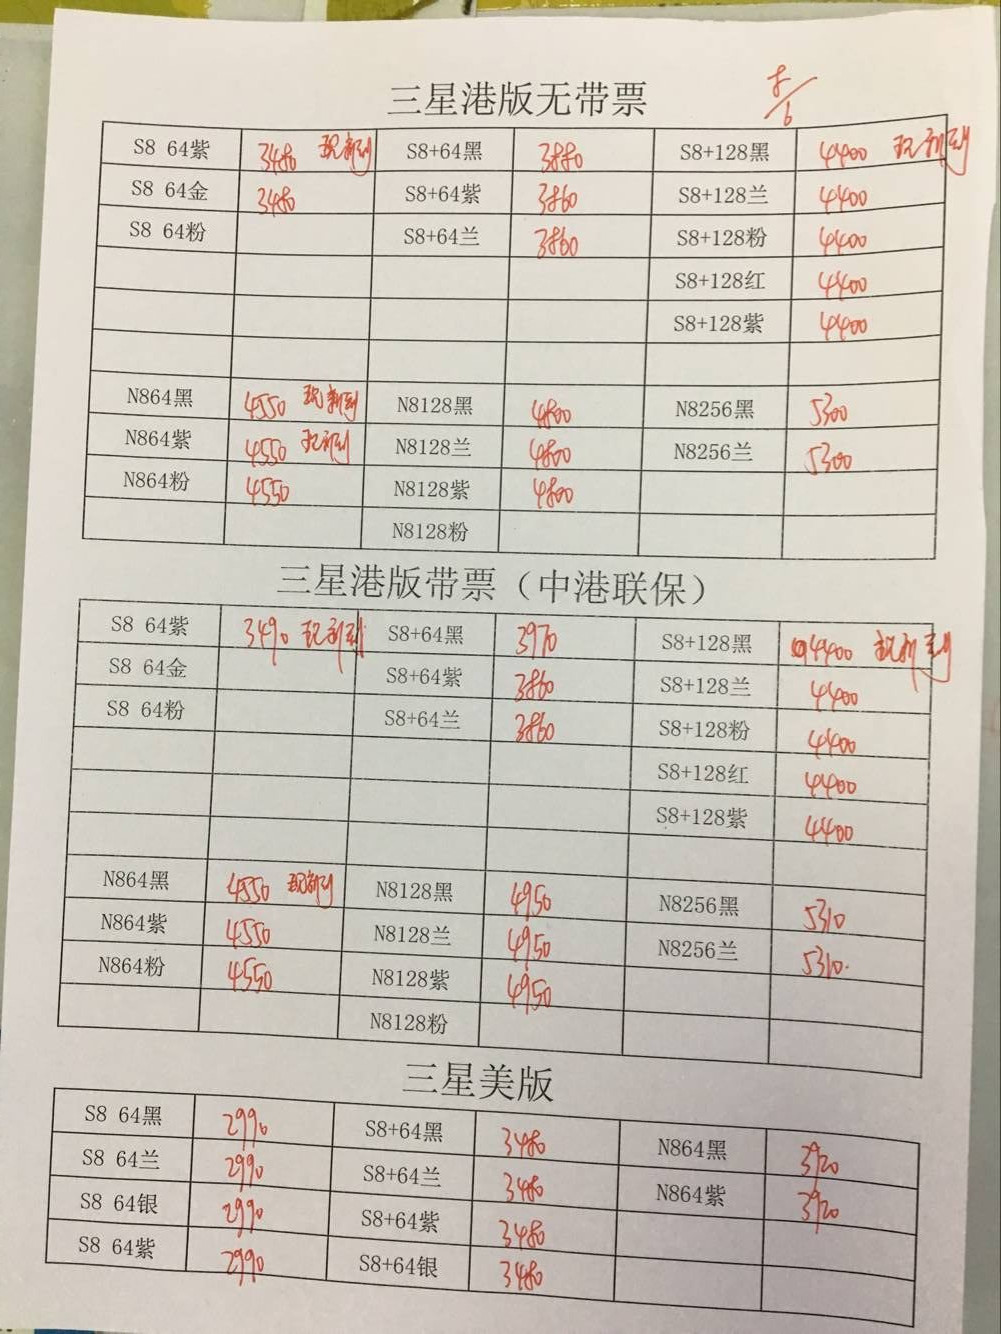 三星港版无带票 8/6
S8 64紫 3480 现新到 S8+64黑 3880 S8+128黑 4400 现新到
S8 64金 3480 S8+64紫 3860 S8+128兰 4400
S8 64粉 S8+64兰 3860 S8+128粉 4400
S8+128红 4400
S8+128紫 4400
N864黑 4550 现新到 N8128黑 4800 N8256黑 5300
N864紫 4550 现新到 N8128兰 4800 N8256兰 5300
N864粉 4550 N8128紫 4800
N8128粉
三星港版带票（中港联保）
S8 64紫 3490 现新到 S8+64黑 3970 S8+128黑 4400 现新到
S8 64金 S8+64紫 3860 S8+128兰 4400
S8 64粉 S8+64兰 3860 S8+128粉 4400
S8+128红 4400
S8+128紫 4400
N864黑 4550 现新到 N8128黑 4950 N8256黑 5310
N864紫 4550 N8128兰 4950 N8256兰 5310
N864粉 4550 N8128紫 4950
N8128粉
三星美版
S8 64黑 2990 S8+64黑 3480 N864黑 3920
S8 64兰 2990 S8+64兰 3480 N864紫 3920
S8 64银 2990 S8+64紫 3480
S8 64紫 2990 S8+64银 3480